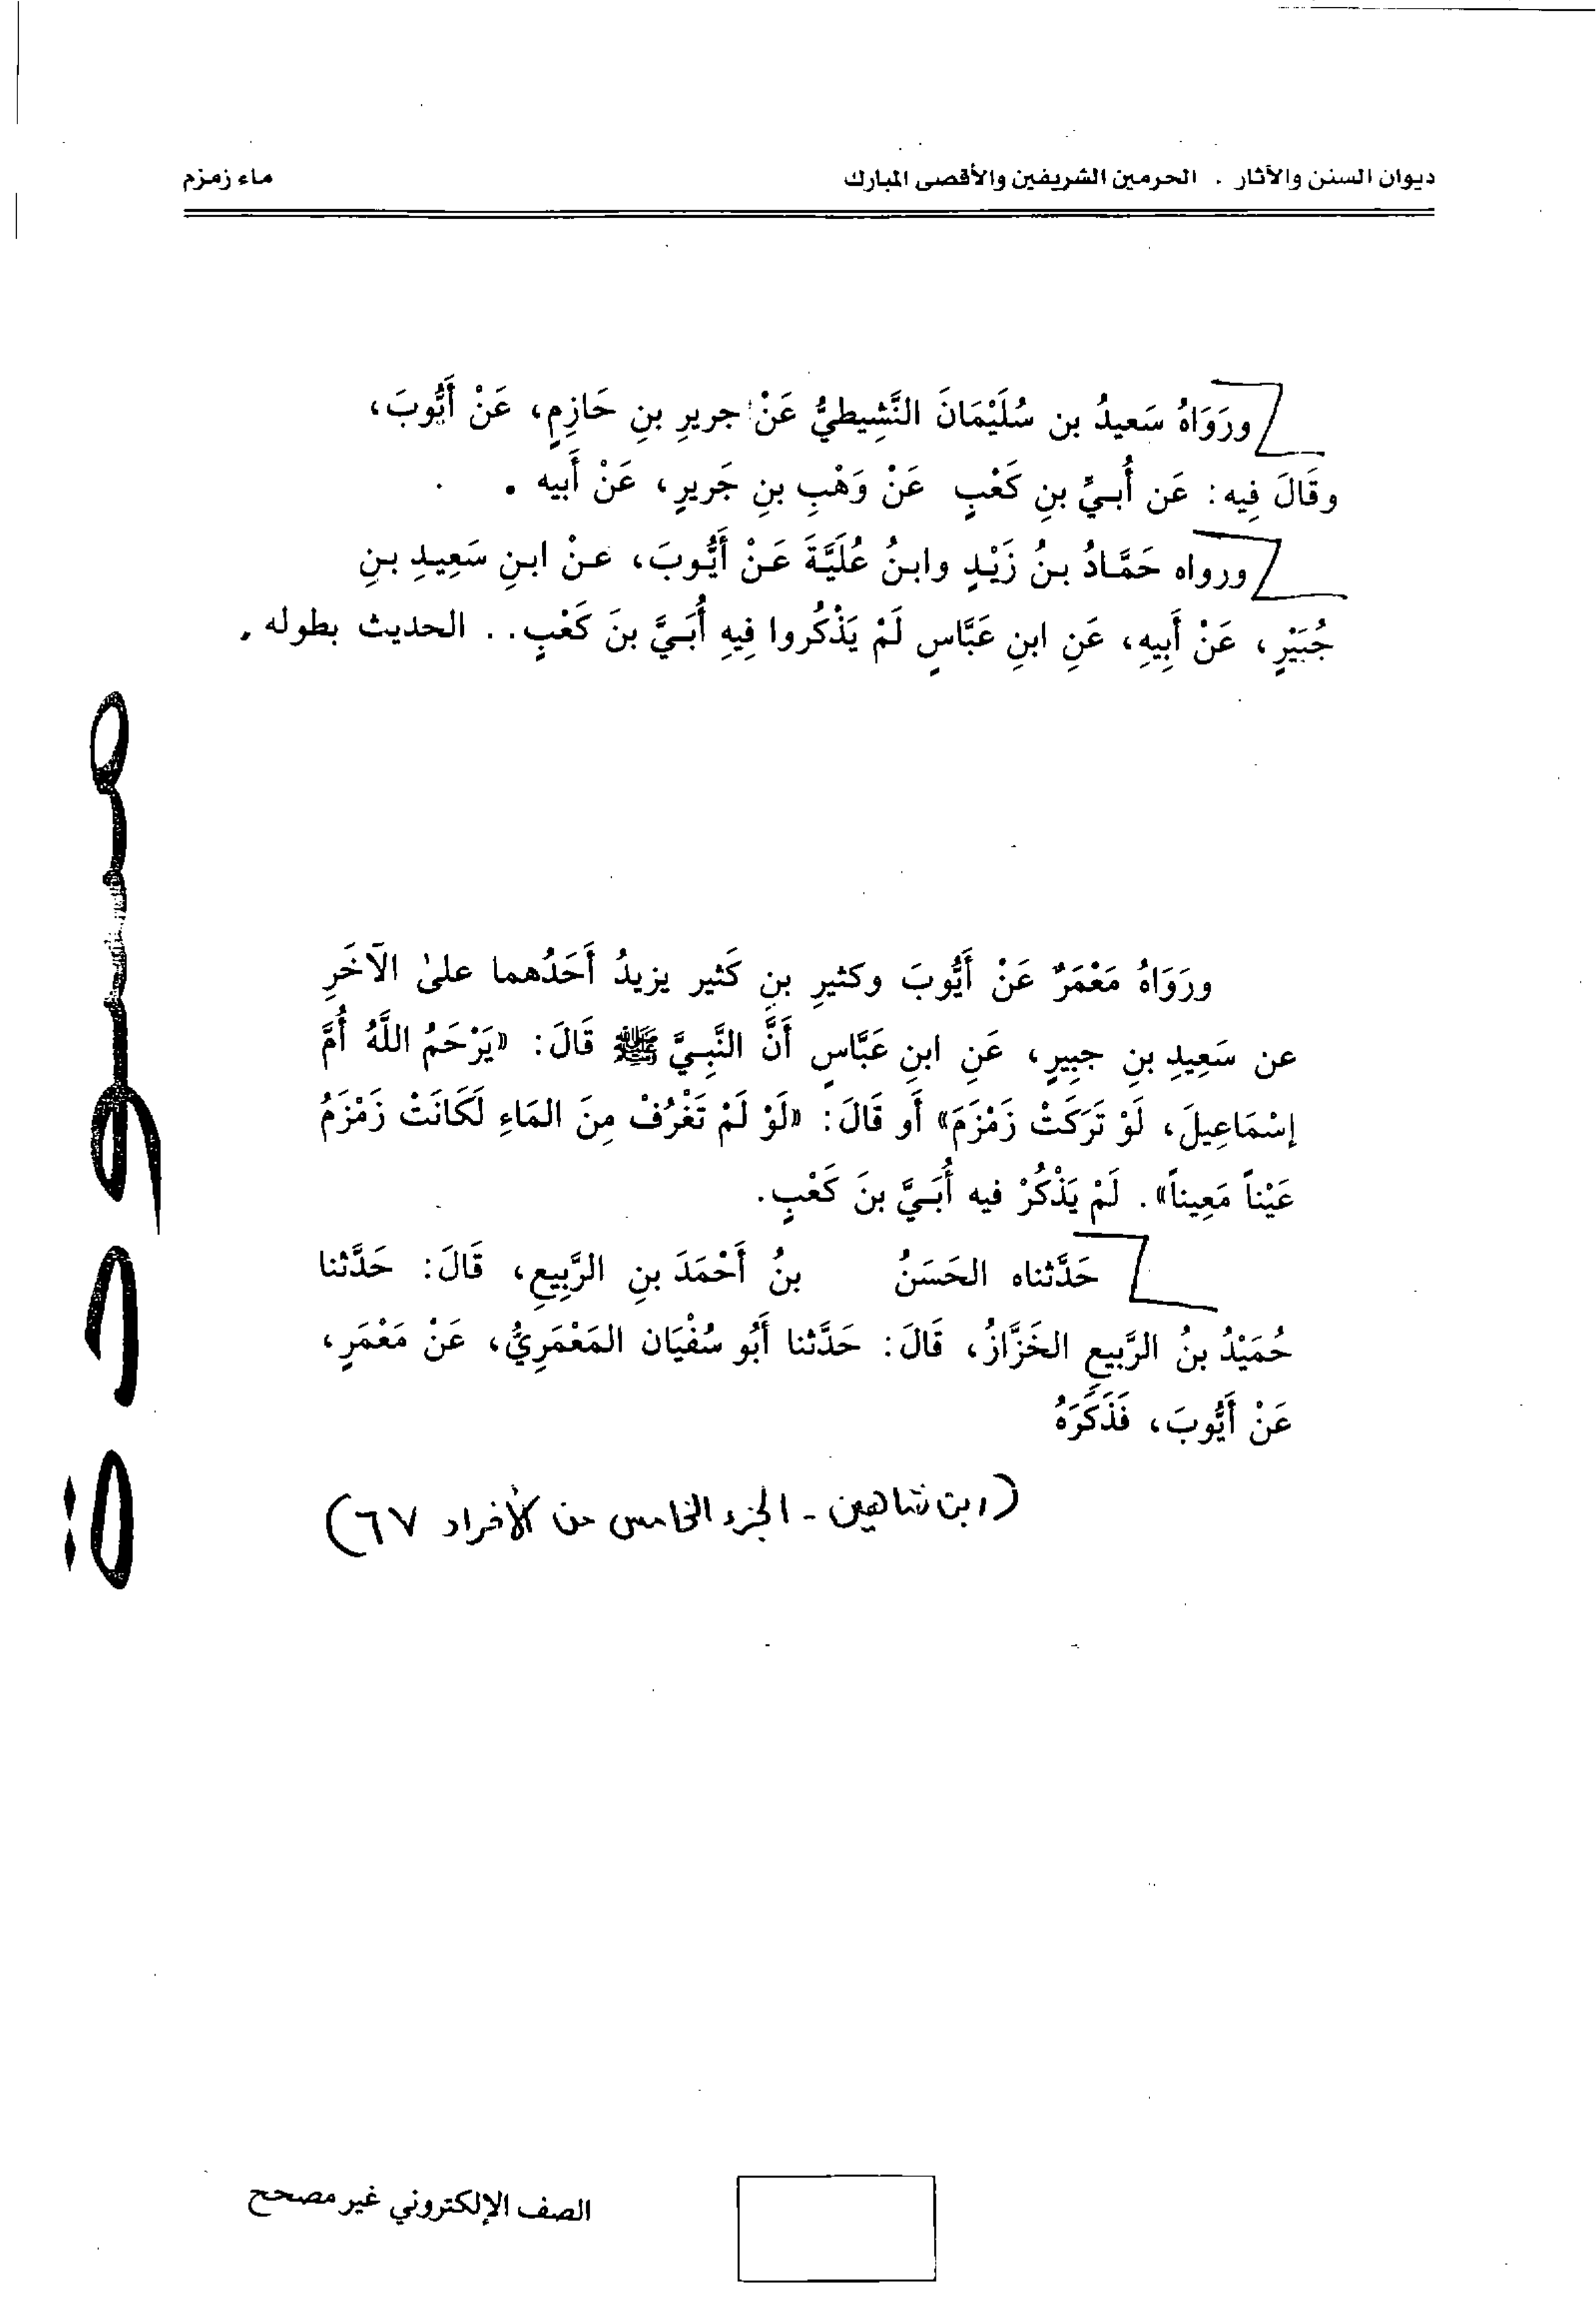 ديوان السنن والآثار . الحرمين الشريفين والأقصى المبارك
ماء زمزم
ورَوَاهُ سَعيدُ بن سُلَيْمَانَ النَّشِيطيُّ عَنْ جريرِ بنِ حَازِمٍ، عَنْ أَيُّوبَ،
وقَالَ فِيه: عَن أُبيِّ بنِ كَعْبٍ عَنْ وَهْبِ بنِ جَريرٍ، عَنْ أَبيه .
ورواه حَمَّادُ بنُ زَيْدٍ وابنُ عُلَيَّةَ عَنْ أَيُّوبَ، عنْ ابنِ سَعِيدِ بنِ
جُبَيْرٍ، عَنْ أَبِيهِ، عَنِ ابنِ عَبَّاسٍ لَمْ يَذْكُروا فِيهِ أُبَيَّ بنَ كَعْبٍ.. الحديث بطوله .
مسودة:
ورَوَاهُ مَعْمَرٌ عَنْ أَيُّوبَ وكثيرِ بنِ كَثير يزيدُ أَحَدُهما علىٰ الآخَرِ
عن سَعِيدِ بنِ جبيرٍ، عَنِ ابنِ عَبَّاسٍ أَنَّ النَّبِيَّ ﷺ قَالَ: «يَرْحَمُ اللَّهُ أُمَّ
إسْمَاعِيلَ، لَوْ تَرَكَتْ زَمْزَمَ» أَو قَالَ: «لَوْ لَمْ تَغْرُفْ مِنَ المَاءِ لَكَانَتْ زَمْزَمُ
عَيْناً مَعِيناً». لَمْ يَذْكُرْ فيه أُبَيَّ بنَ كَعْبٍ.
حَدَّثناه الحَسَنُ بنُ أَحْمَدَ بنِ الرَّبِيعِ، قَالَ: حَدَّثنا
حُمَيْدُ بنُ الرَّبيعِ الخَزَّازُ، قَالَ: حَدَّثنا أَبُو سُفْيَان المَعْمَرِيُّ، عَنْ مَعْمَرٍ،
عَنْ أَيُّوبَ، فَذَكَرَهُ
(ابن شاهين - الجزء الخامس من الأفراد ٦٧)
الصف الإلكتروني غير مصحح